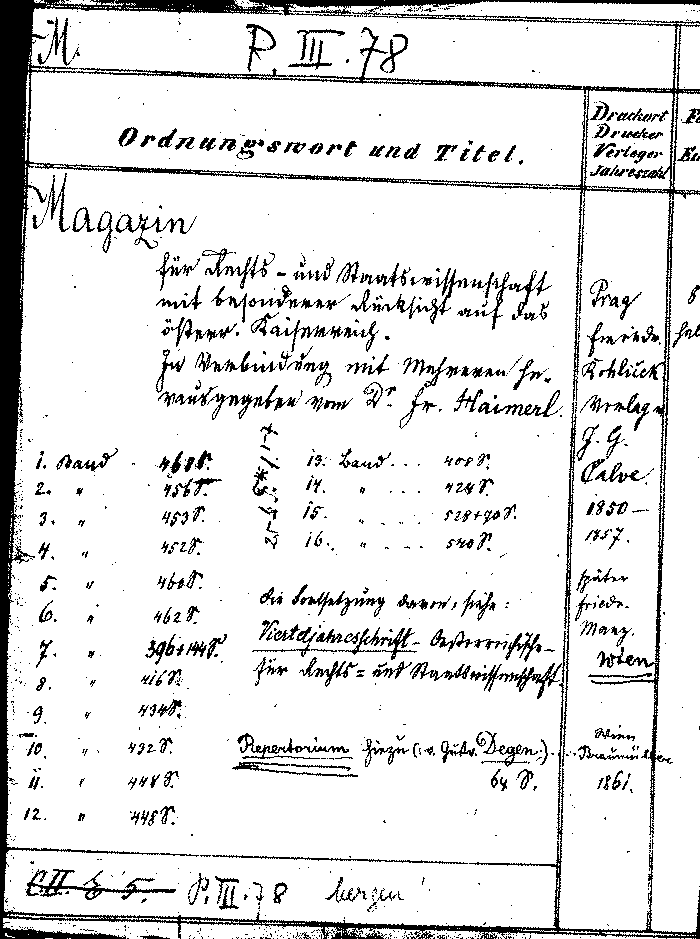 M.
P. III. 78
Ordnungswort und Titel.
Druckort
Drucker
Verleger
Jahreszahl
Magazin
für Rechts- und Staatswissenschaft
mit besonderer Rücksicht auf das
österr. Kaiserreich.
In Verbindung mit Mehreren he-
rausgegeben vom Dr. Fr. Haimerl.
Prag
Friedr.
Verlag
J. G.
Calve.
1850-
1857.
später
Friedr.
Manz.
Wien
1. Band 460 S.
2. " 456 S.
3. " 453 S.
4. " 452 S.
5. " 460 S.
6. " 462 S.
7. " 396+144 S.
8. " 416 S.
9. " 434 S.
10. " 432 S.
11. " 448 S.
12. " 448 S.
13. Band ... 408 S.
14. " ... 424 S.
15. " ... 528+90 S.
16. " ... 540 S.
die Fortsetzung davon, siehe:
Vierteljahresschrift - Oesterreichische-
für Rechts- und Staatswissenschaft.
Repertorium hiezu (: v. Gust. Degen :)
64 S.
Wien
Braumüller
1861.
CII. E 5. P. III. 78 bergen